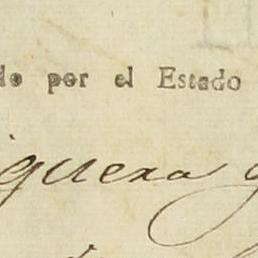 do por el Estado
iguera y